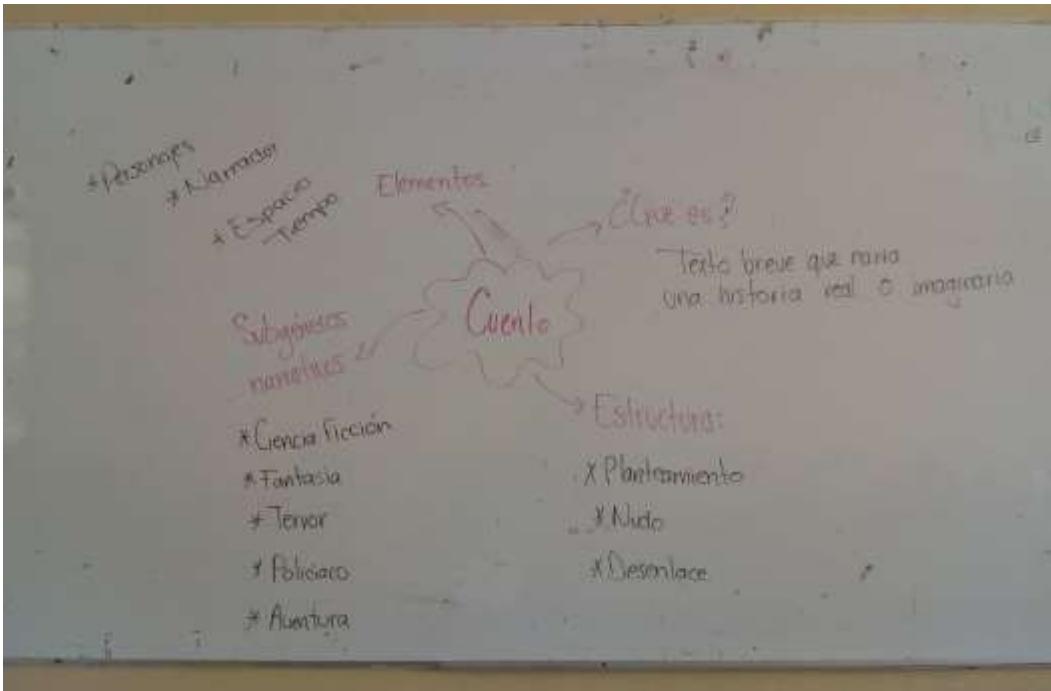 *Personajes
*Narrador
*Espacio
Tiempo
Elementos
¿Que es?
Texto breve que narra
una historia real o imaginaria
Cuento
Subgéneros
narrativos
*Ciencia Ficción
*Fantasia
*Terror
*Policiaco
*Aventura
Estructura:
*Planteamiento
*Nudo
*Desenlace